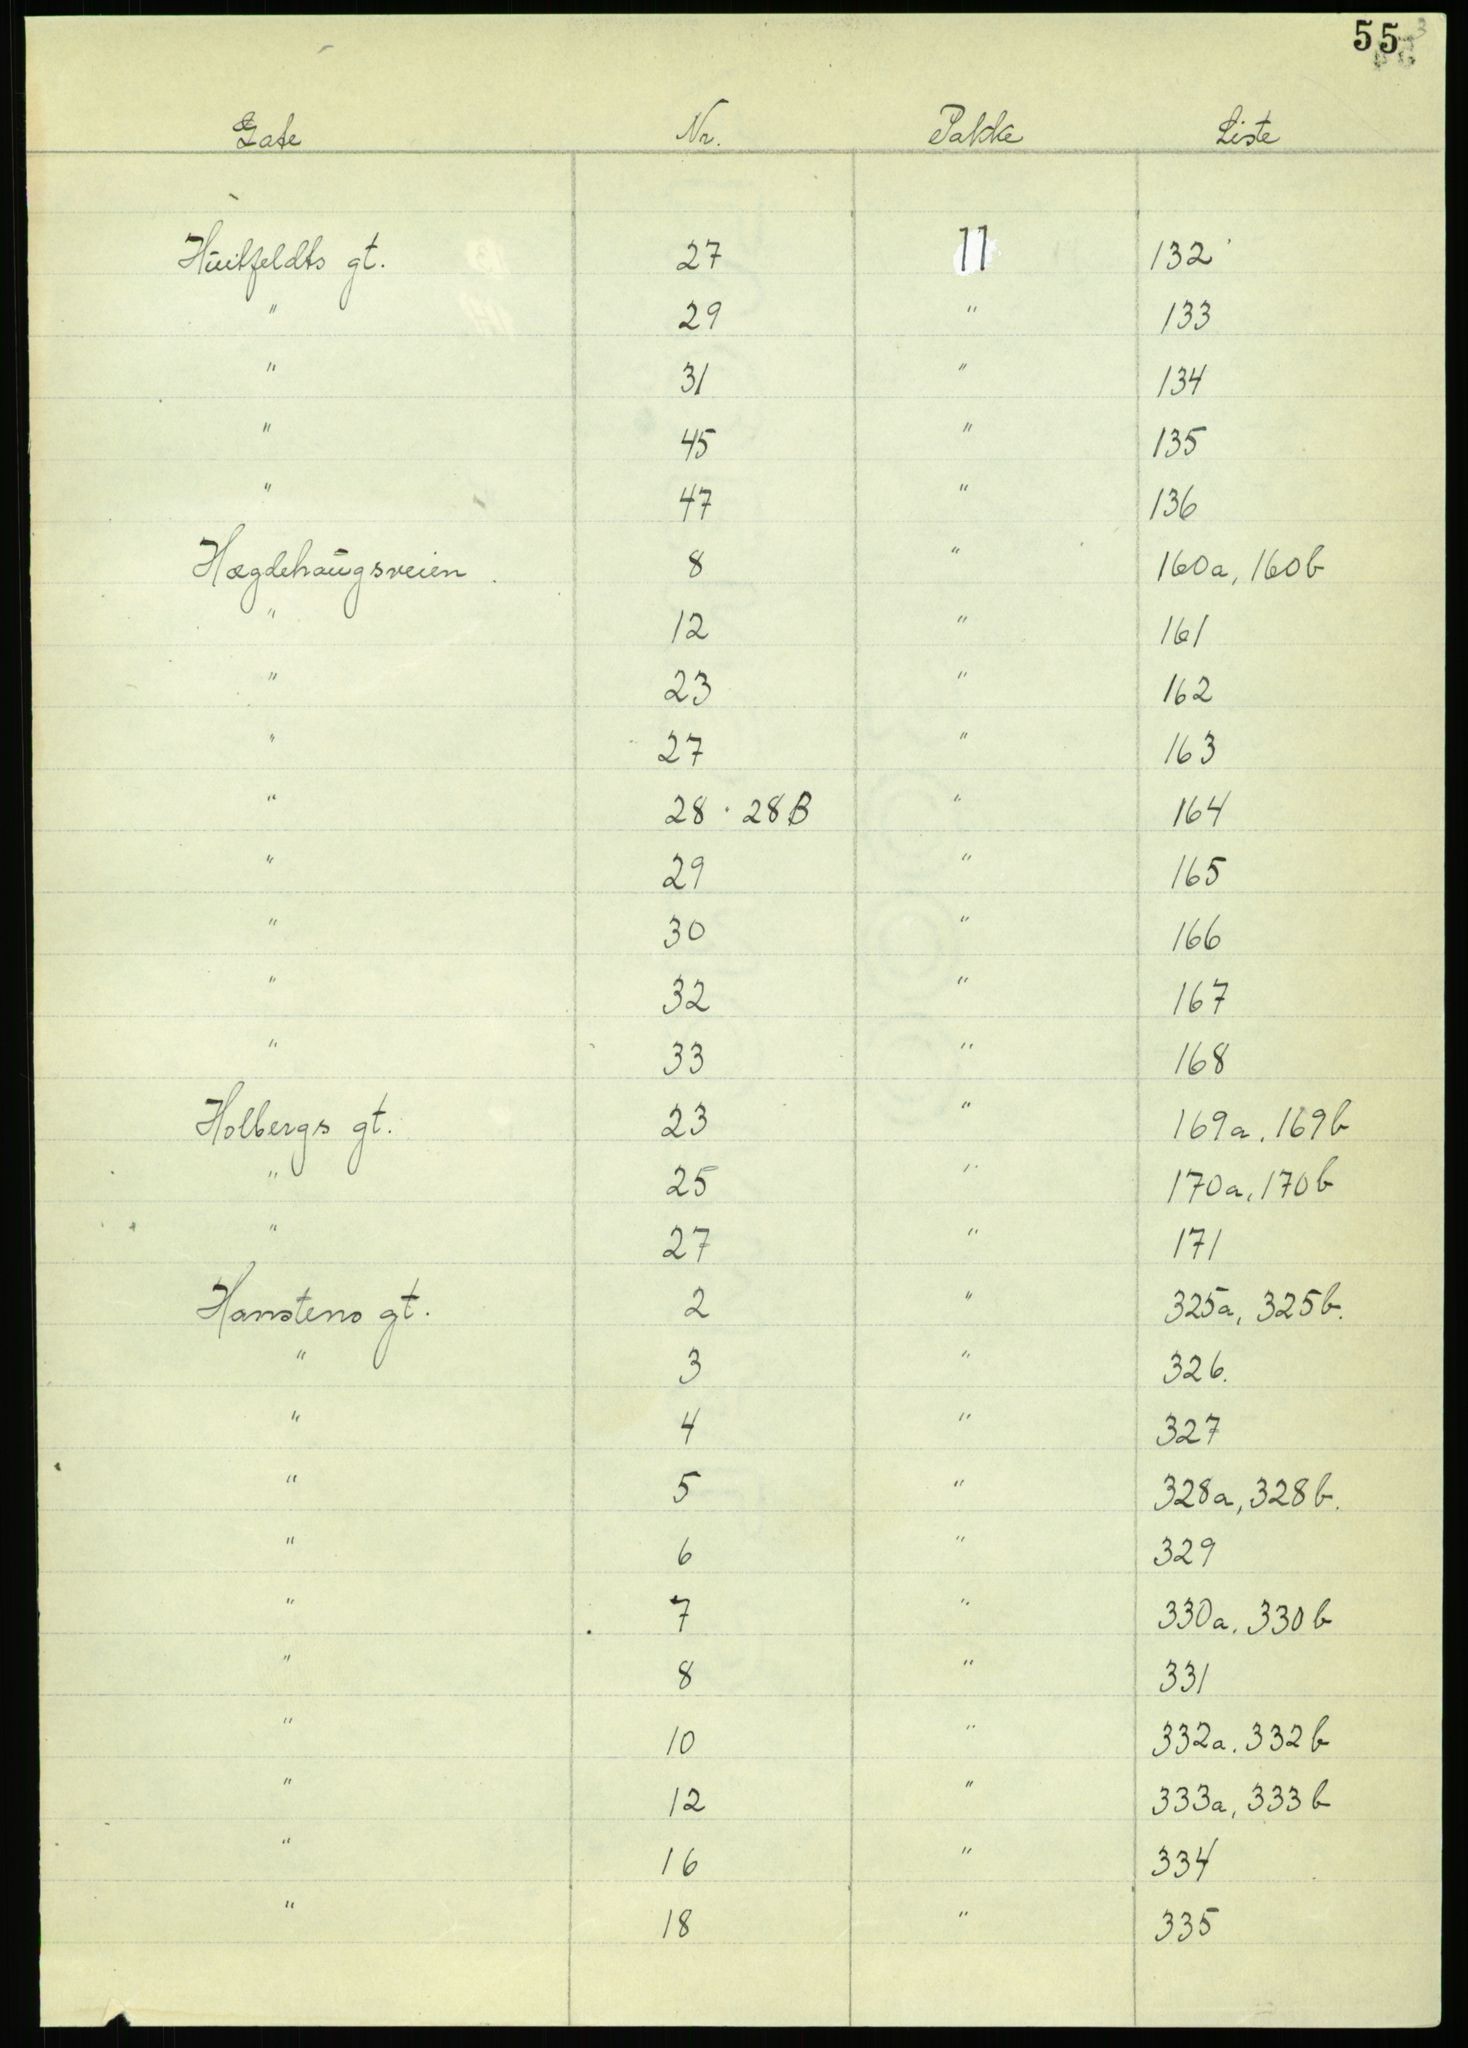 55
Gate Nr. Pakke Liste
Huitfeldts gt. 27 11 132
" 29 " 133
" 31 " 134
" 45 " 135
" 47 " 136
Hægdehaugsveien. 8 " 160a, 160b
" 12 " 161
" 23 " 162
" 27 " 163
" 28 · 28B " 164
" 29 " 165
" 30 " 166
" 32 " 167
" 33 " 168
Holbergs gt. 23 " 169a. 169b
" 25 " 170a, 170b
" 27 " 171
Hanstens gt. 2 " 325a, 325b.
" 3 " 326.
" 4 " 327
" 5 " 328a, 328b.
" 6 " 329
" 7 " 330a. 330b
" 8 " 331
" 10 " 332a. 332b
" 12 " 333a, 333b
" 16 " 334
" 18 " 335